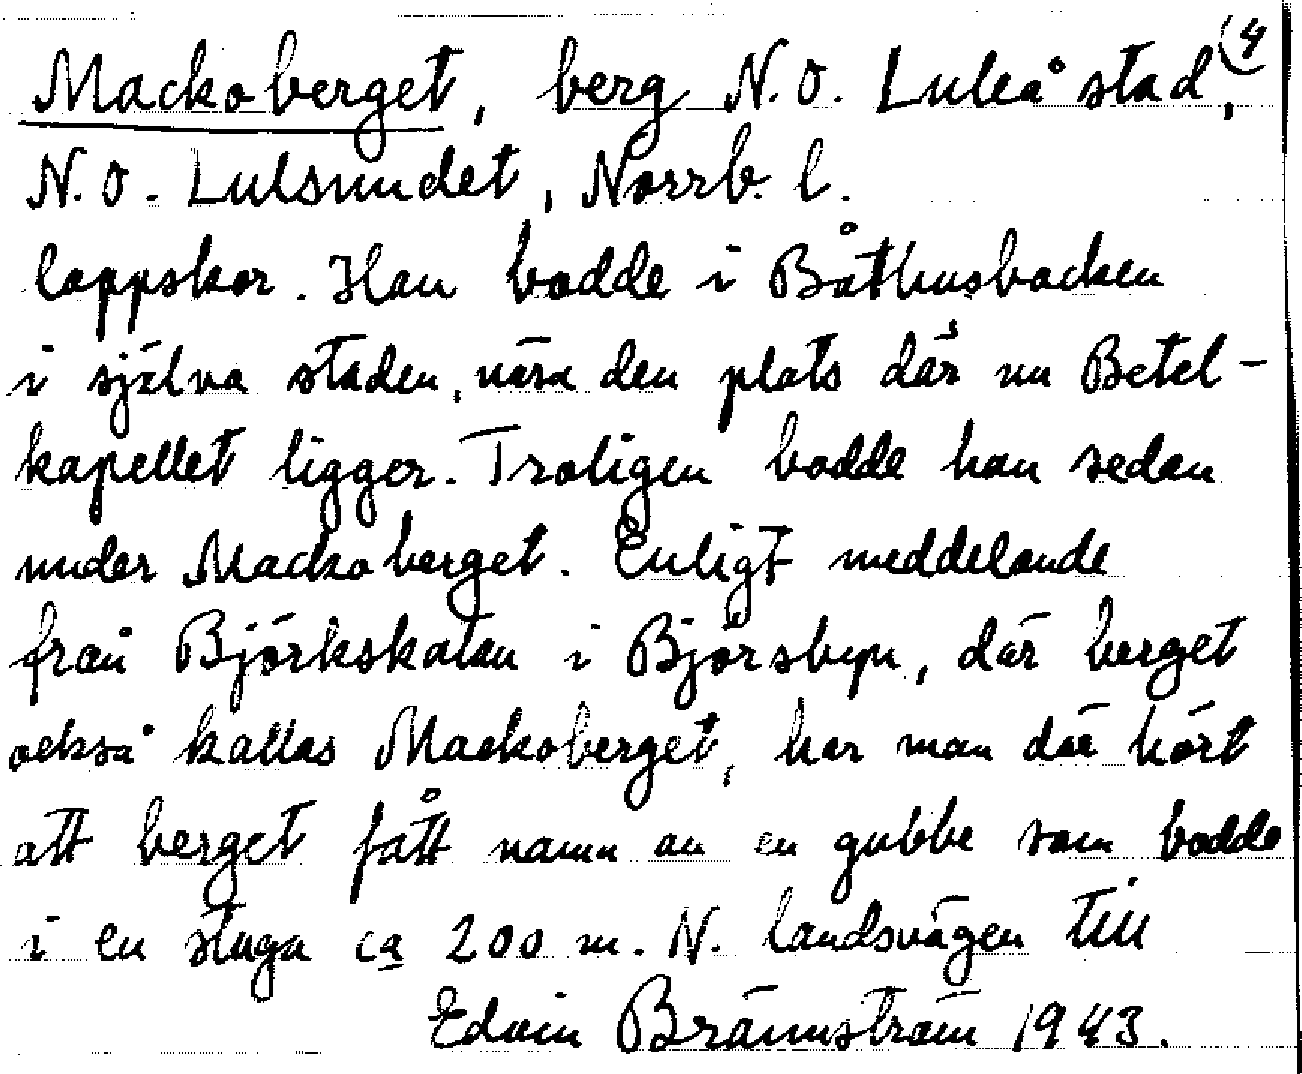 Mackoberget, berg N.O. Luleå stad, (4
N.O. Lulsundet, Norrb. l.
lappskor. Han bodde i Båthusbacken
i själva staden, nära den plats där nu Betel-
kapellet ligger. Troligen bodde han sedan
under Mackoberget. Enligt meddelande
från Björkskatan i Björsbyn, där berget
också kallas Mackoberget, har man där hört
att berget fått namn av en gubbe som bodde
i en stuga ca 200 m. N. landsvägen till
Edvin Brännström 1943.